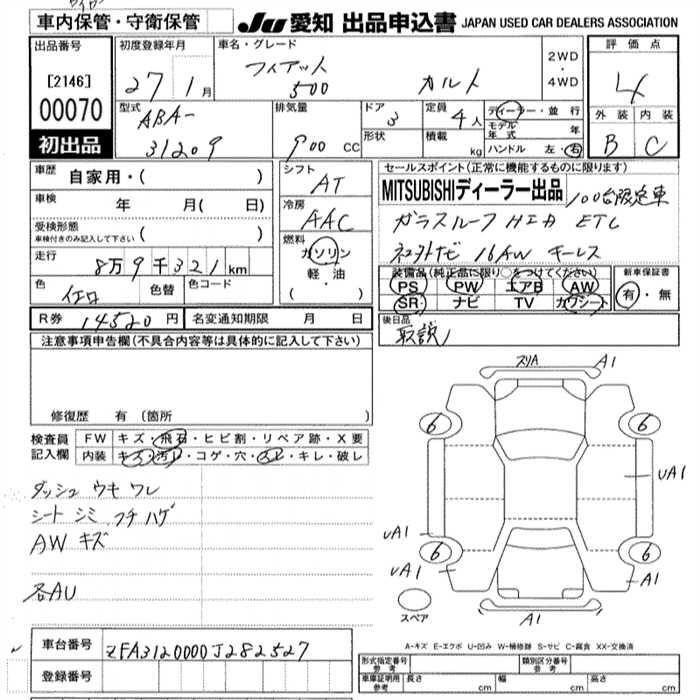 車内保管・守衛保管
Ju 愛知 出品申込書 JAPAN USED CAR DEALERS ASSOCIATION
出品番号
[2146]
00070
初出品
初度登録年月
27 1月
車名・グレード
フィアット
500
カルト
2WD
・
4WD
評価点
4
外装 内装
B C
型式
ABA-
31209
排気量
900 CC
ドア
3
形状
定員
4人
積載
kg
ディーラー・並行
モデル
年式
年
ハンドル 左・右
車歴
自家用・( )
車検
年 月( 日)
受検形態
車検付きのみ記入して下さい ( )
走行
8万9千321km
色 色替 色コード
シフト
AT
冷房
AAC
燃料
ガソリン
軽・油
( ・ )
R券 14520円 名変通知期限 月 日
セールスポイント(正常に機能するものに限ります)
MITSUBISHIディーラー出品
100台限定車
ガラスルーフ HID ETC
16AW キーレス
装備品(純正品に限り○をつけてください)
PS PW エアB AW
SR ナビ TV カワシート
新車保証書
有・無
後日品
取説
注意事項申告欄(不具合内容等は具体的に記入して下さい)
修復歴 有 (箇所
検査員
記入欄
FW キズ・飛石・ヒビ割・リペア跡・X要
内装 キズ・汚レ・コゲ・穴・スレ・キレ・破レ
ダッシュ ウキ ワレ
シート シミ フチ ハゲ
AW キズ
各AU
スリA A1
6 6
UA1
UA1
6 6
UA1 A1
スペア
A1
A-キズ E-エクボ U-凹み W-補修跡 S-サビ C-腐食 XX-交換済
車台番号 ZFA3120000J282527
登録番号
形式指定番号
参考
類別区分番号
参考
車庫証明用
参考
長さ cm 幅 cm 高さ cm